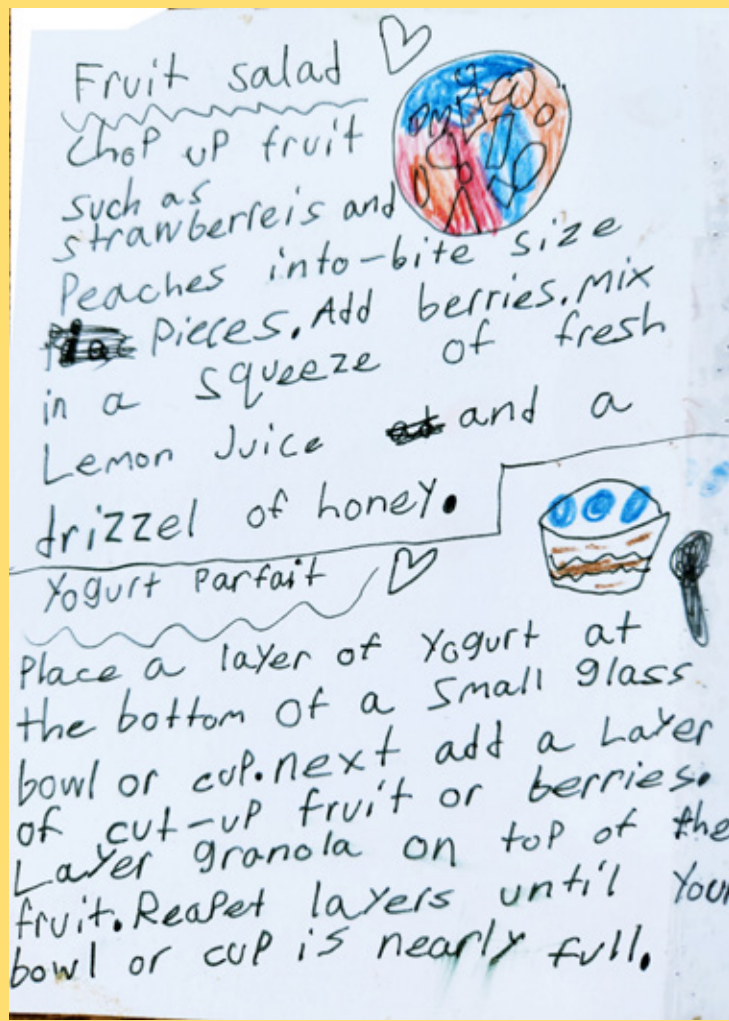 Fruit salad
Chop up fruit
such as
strawberreis and
Peaches into-bite size
pieces. Add berries. Mix
in a squeeze of fresh
Lemon Juice and a
drizzel of honey.
Yogurt Parfait
Place a layer of Yogurt at
the bottom of a small glass
bowl or cup. next add a Layer
of cut-up fruit or berries.
Layer granola on top of the
fruit. Reapet layers until your
bowl or cup is nearly full.